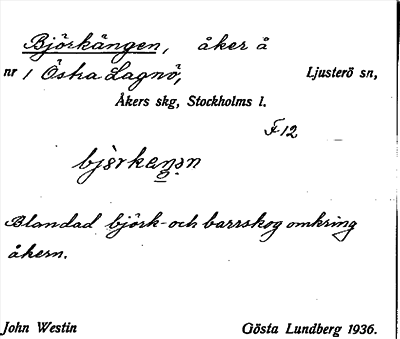 Björkängen, åker å
nr 1 Östra Lagnö, Ljusterö sn,
Åkers skg, Stockholms l.
F 12
Blandad björk- och barrskog omkring
åkern.
John Westin Gösta Lundberg 1936.